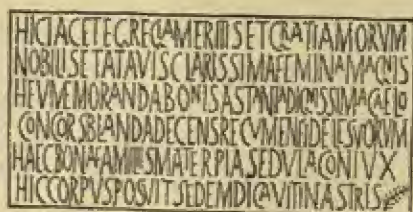 HIC IACET EGREGIA MERITIS ET GRATIA MORVM
NOBILIS ET ATAVIS CLARISSIMA FEMINA MAGNIS
HEV MEMORANDA BONIS ASTANTIA DIGNISSIMA CAELO
CONCORS BLANDA DECENS RECVMENS FIDELES VORVM
HAEC BONA FAMILIES MATER PIA SEDVLA CONIVX
HIC CORPVS POSVIT SEDEM DICAVIT IN ASTRIS